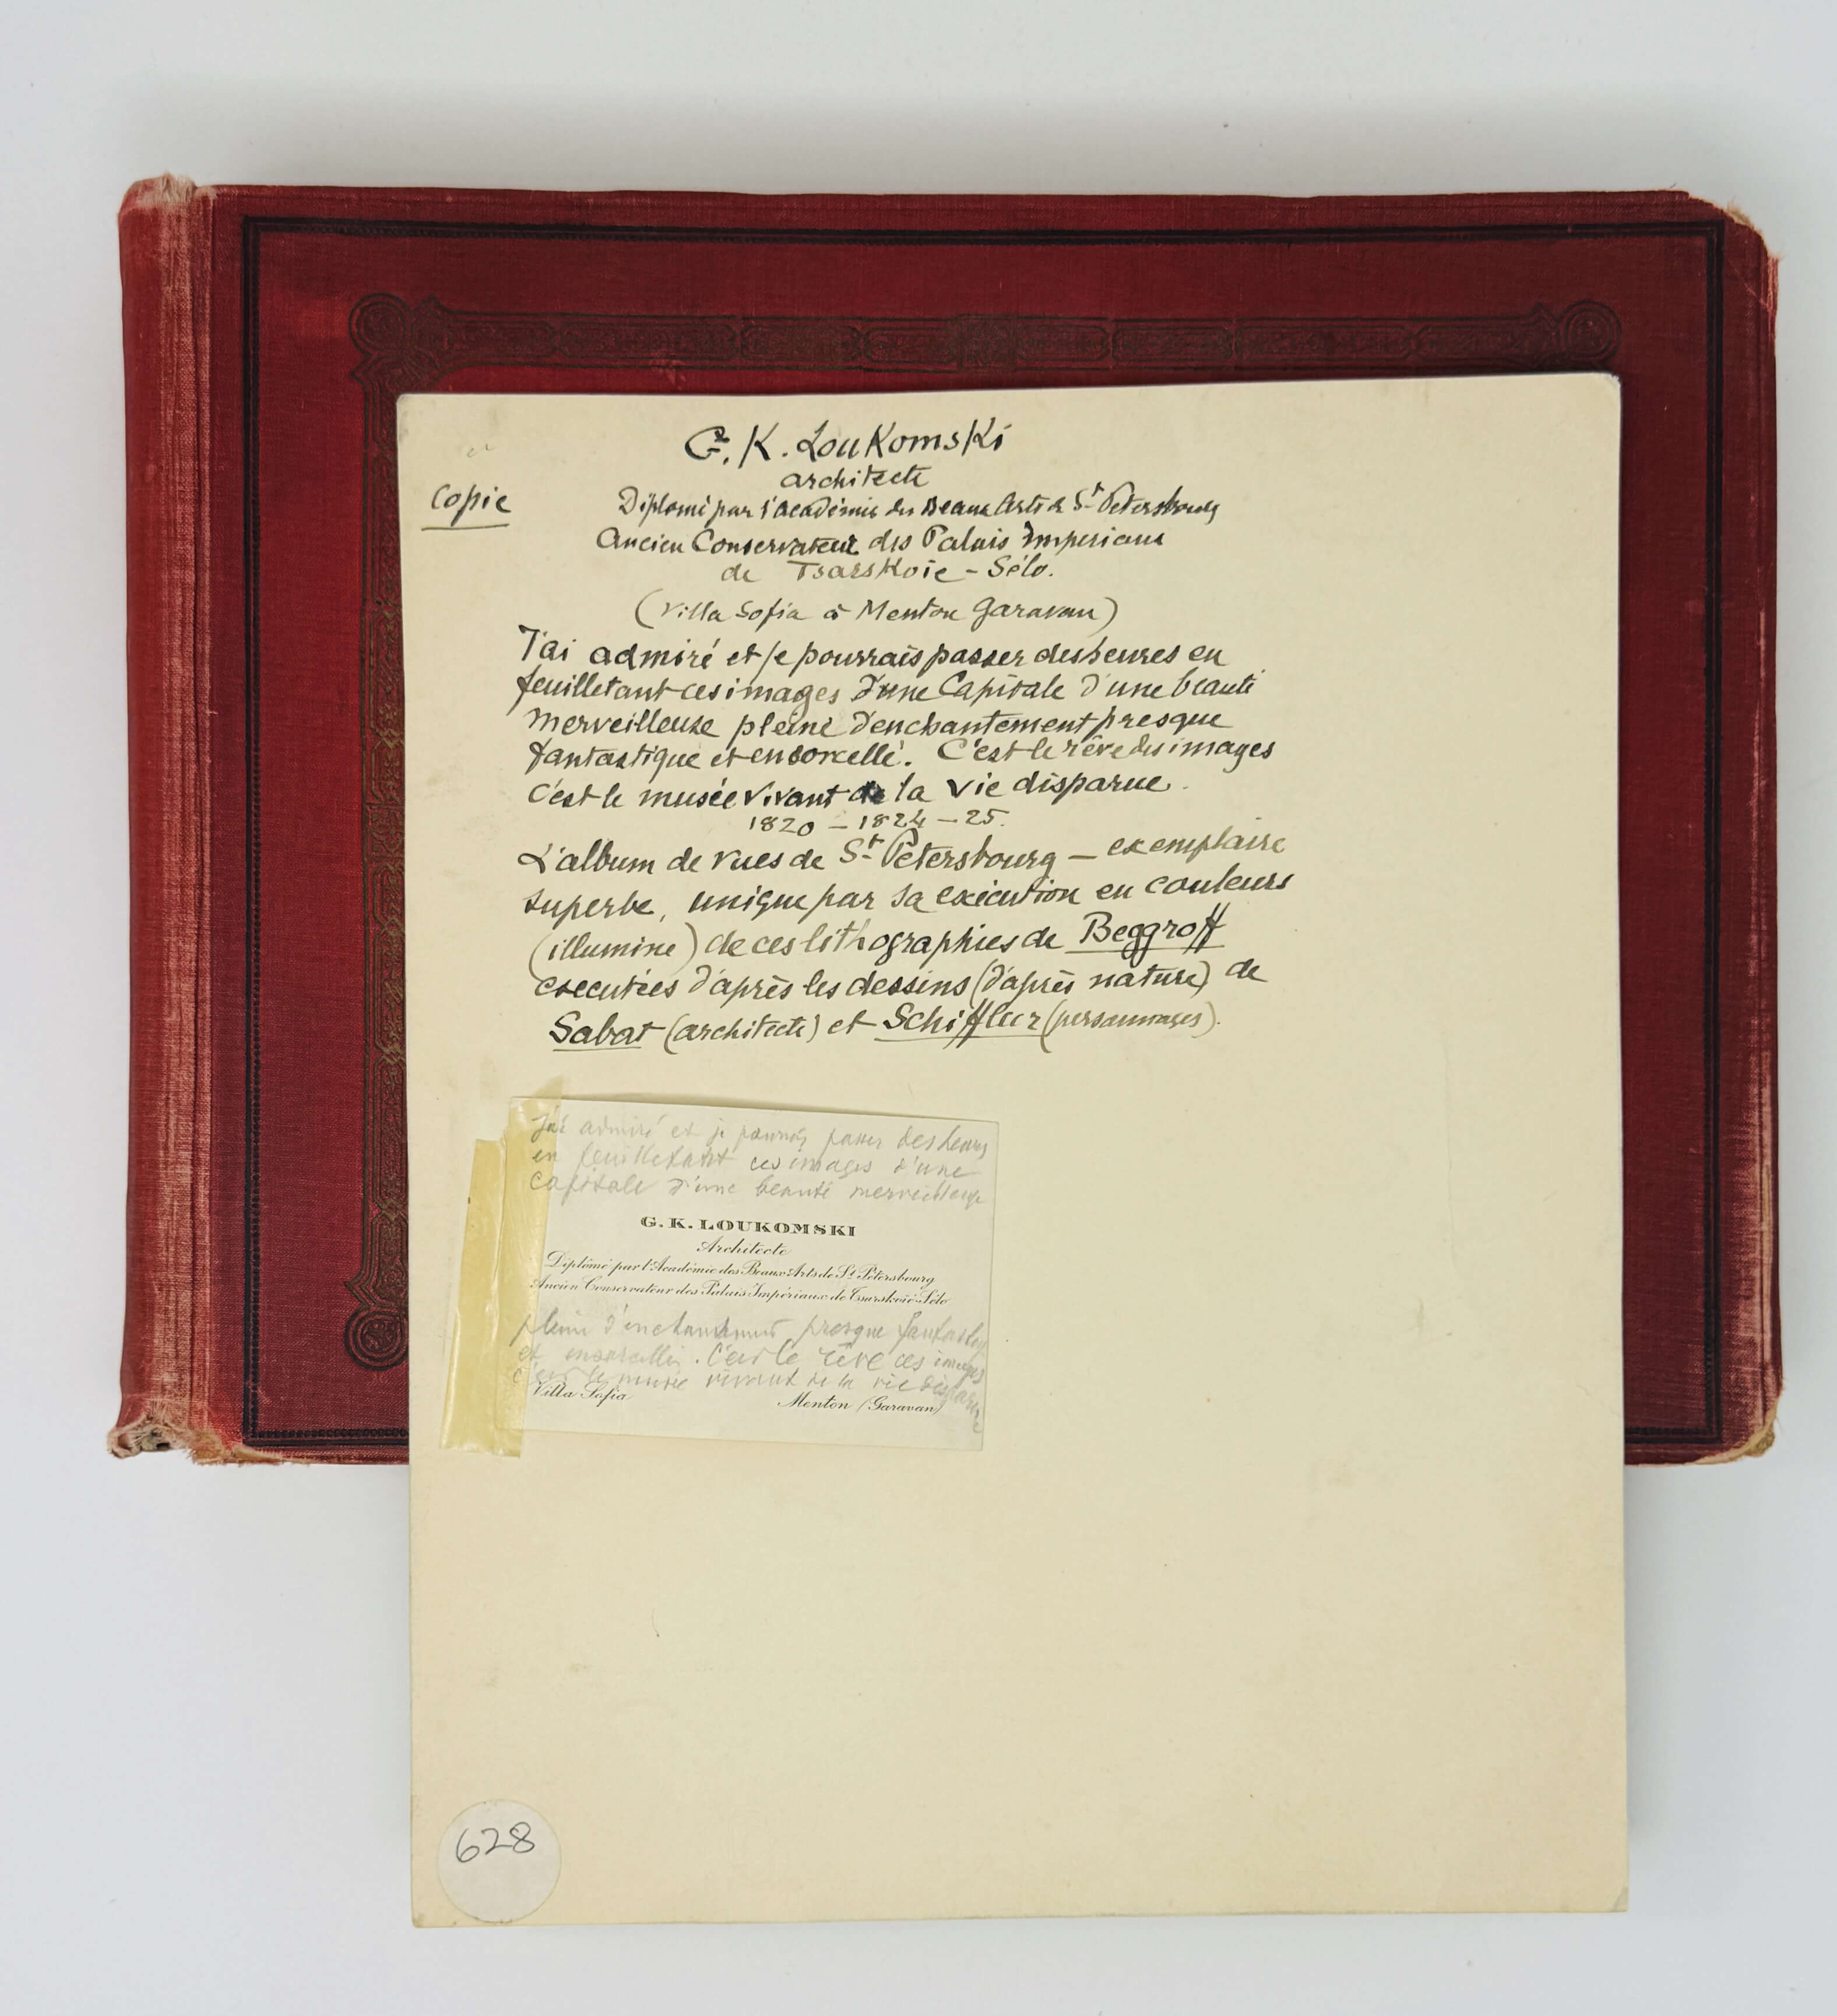 G. K. Loukomski
architecte
Copie
Diplomé par l'académie des Beaux Arts de St Petersbourg
Ancien Conservateur des Palais Imperiaux
de Tsarskoie-Sélo.
(Villa Sofia à Menton Garavan)
J'ai admiré et je pourrais passer des heures en
feuilletant ces images d'une Capitale d'une beauté
merveilleuse pleine d'enchantement presque
fantastique et ensorcellé. C'est le rêve des images
c'est le musée vivant de la vie disparue.
1820 – 1824 – 25.
L'album de vues de St Pétersbourg – exemplaire
superbe, unique par sa exécution en couleurs
(illumine) de ces lithographies de Beggroff
executées d'après les dessins (d'après nature) de
Sabat (architecte) et Schiffler (personnages).
J'ai admiré et je pourrais passer des heures
en feuilletant ces images d'une
capitale d'une beauté merveilleuse
G. K. LOUKOMSKI
Architecte
Diplômé par l'Académie des Beaux Arts de St Pétersbourg
Ancien Conservateur des Palais Impériaux de Tsarskoïé-Sélo
pleine d'enchantement presque
et . C'est le rêve ces images
c'est le musée vivant de la vie disparue
Villa Sofia
Menton (Garavan)
628